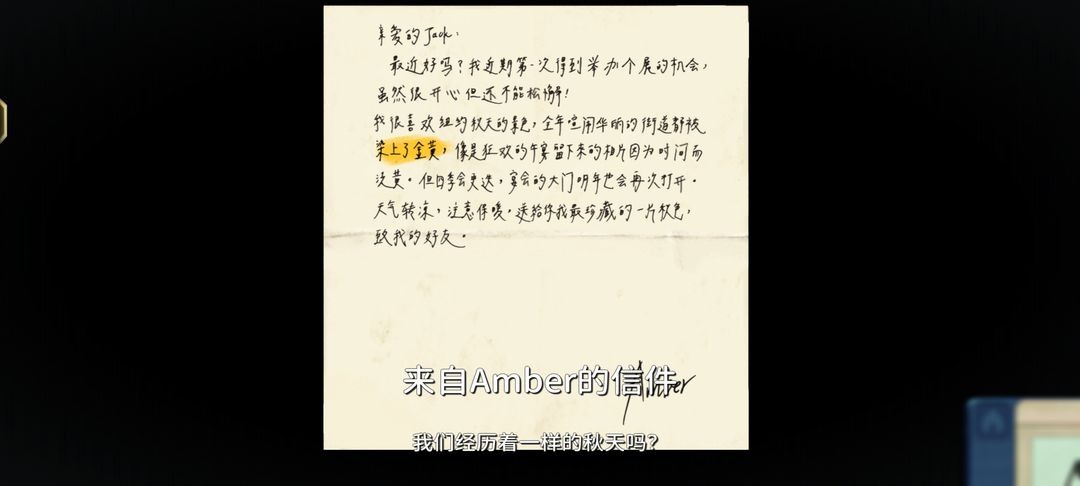 亲爱的Jack:
最近好吗?我近期第一次得到举办个展的机会,
虽然很开心但还不能松懈!
我很喜欢纽约秋天的景色,全年喧闹华丽的街道都被
染上了金黄,像是狂欢的午宴留下来的相片因为时间而
泛黄。但四季会更迭,宴会的大门明年也会再次打开。
天气转凉,注意保暖。送给你我最珍藏的一片秋色,
致我的好友。
Amber
来自Amber的信件
我们经历着一样的秋天吗?